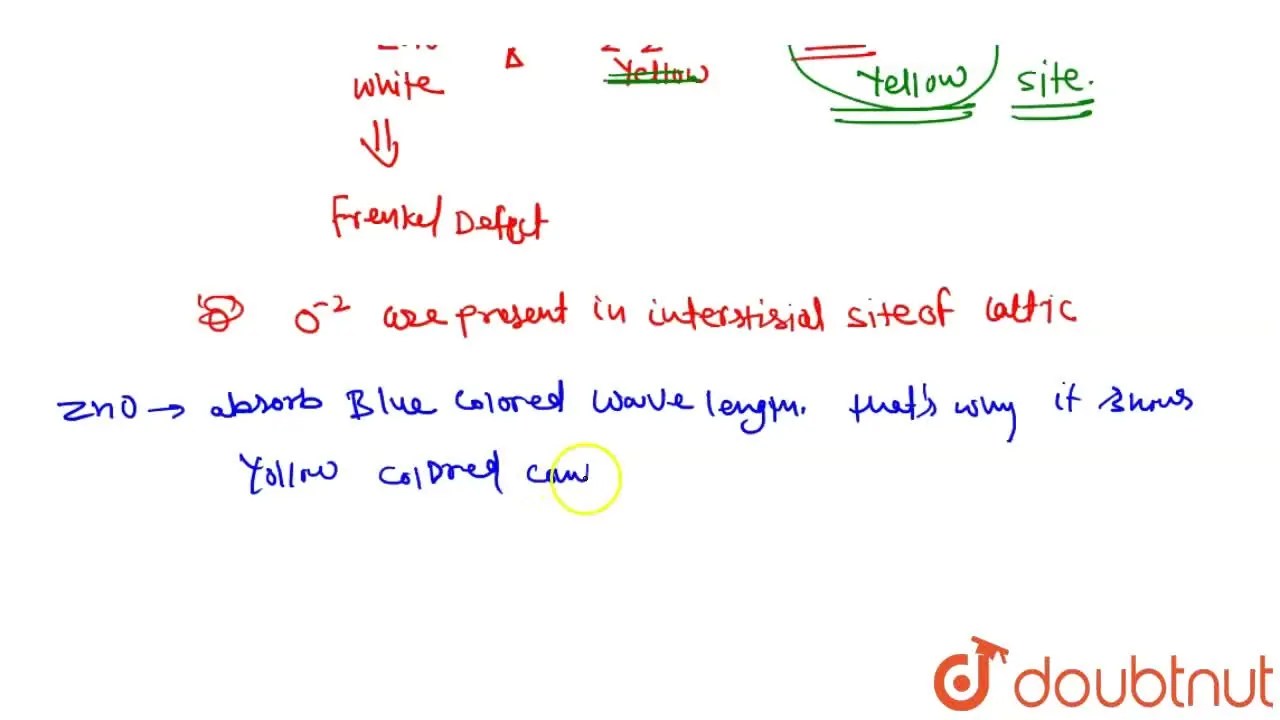 White Δ Yellow Yellow site.
⇓
Frenkel Defect
O⁻² are present in interstisial site of lattic
ZnO → absorb Blue colored wave length. that's why it shows
Yollow colored
doubtnut